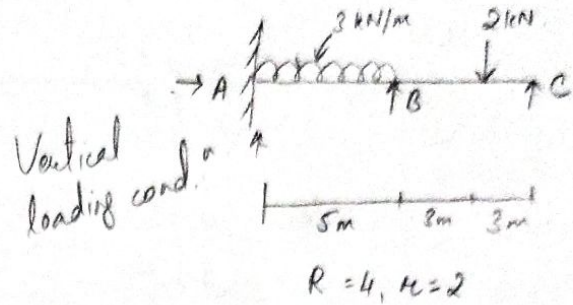 3 kN/m
2 kN.
A
B
C
Vertical
loading cond.n
5m
3m
3m
R = 4, r = 2